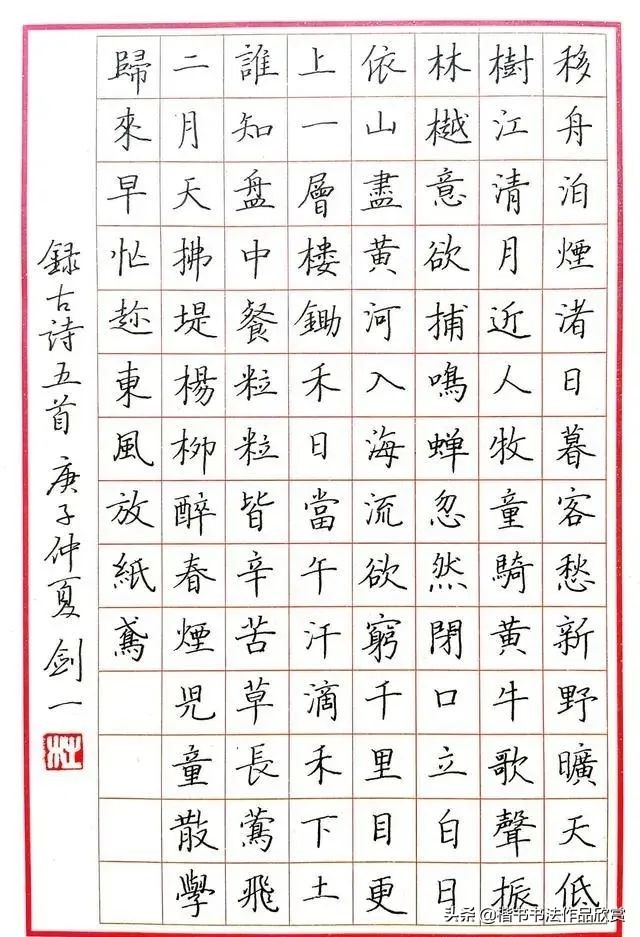 移舟泊煙渚日暮客愁新野曠天低
樹江清月近人牧童騎黃牛歌聲振
林樾意欲捕鳴蟬忽然閉口立白日
依山盡黃河入海流欲窮千里目更
上一層楼鋤禾日當午汗滴禾下土
誰知盘中餐粒粒皆辛苦草長鶯飛
二月天拂堤楊柳醉春煙児童散學
歸來早忙趂東風放紙鳶
録古詩五首 庚子仲夏 剑一
头条 @楷书书法作品欣赏